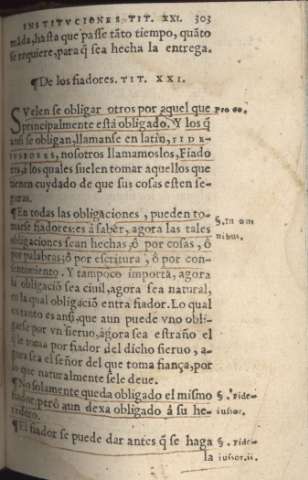 INSTITVCIONES TIT. XXI. 303
máda, hasta que passe tãto tiempo, quáto
se requiere, para q̃ sea hecha la entrega.
¶ De los fiadores. TIT. XXI.
SVelen se obligar otros por aquel que
principalmente está obligado. Y los q̃
ansi se obligan, llamanse en latin, FIDE-
IVSSORES, nosotros llamamoslos, Fiado
res, á los quales suelen tomar aquellos que
tienen cuydado de que sus cosas esten se-
guras.
¶ En todas las obligaciones, pueden to-
marse fiadores: es á saber, agora las tales
obligaciones sean hechas, ó por cosas, ó
por palabras, ó por escritura, ó por con-
sentimiento. Y tampoco importa, agora
la obligació sea ciuil, agora sea natural,
en la qual obligació entra fiador. Lo qual
es tanto es ansi, que aun puede vno obli-
garse por vn sieruo, agora sea estraño el
que toma por fiador del dicho sieruo, a-
gora sea el señor del que toma fiança, por
lo que naturalmente se le deue.
¶ No solamente queda obligado el mismo
fiador, peró aun dexa obligado á su he-
redero.
¶ El fiador se puede dar antes q̃ se haga
la
Pro eo.
§. In om
nibus.
§. Fide-
iussor.
§. Fide-
iussor.ii.